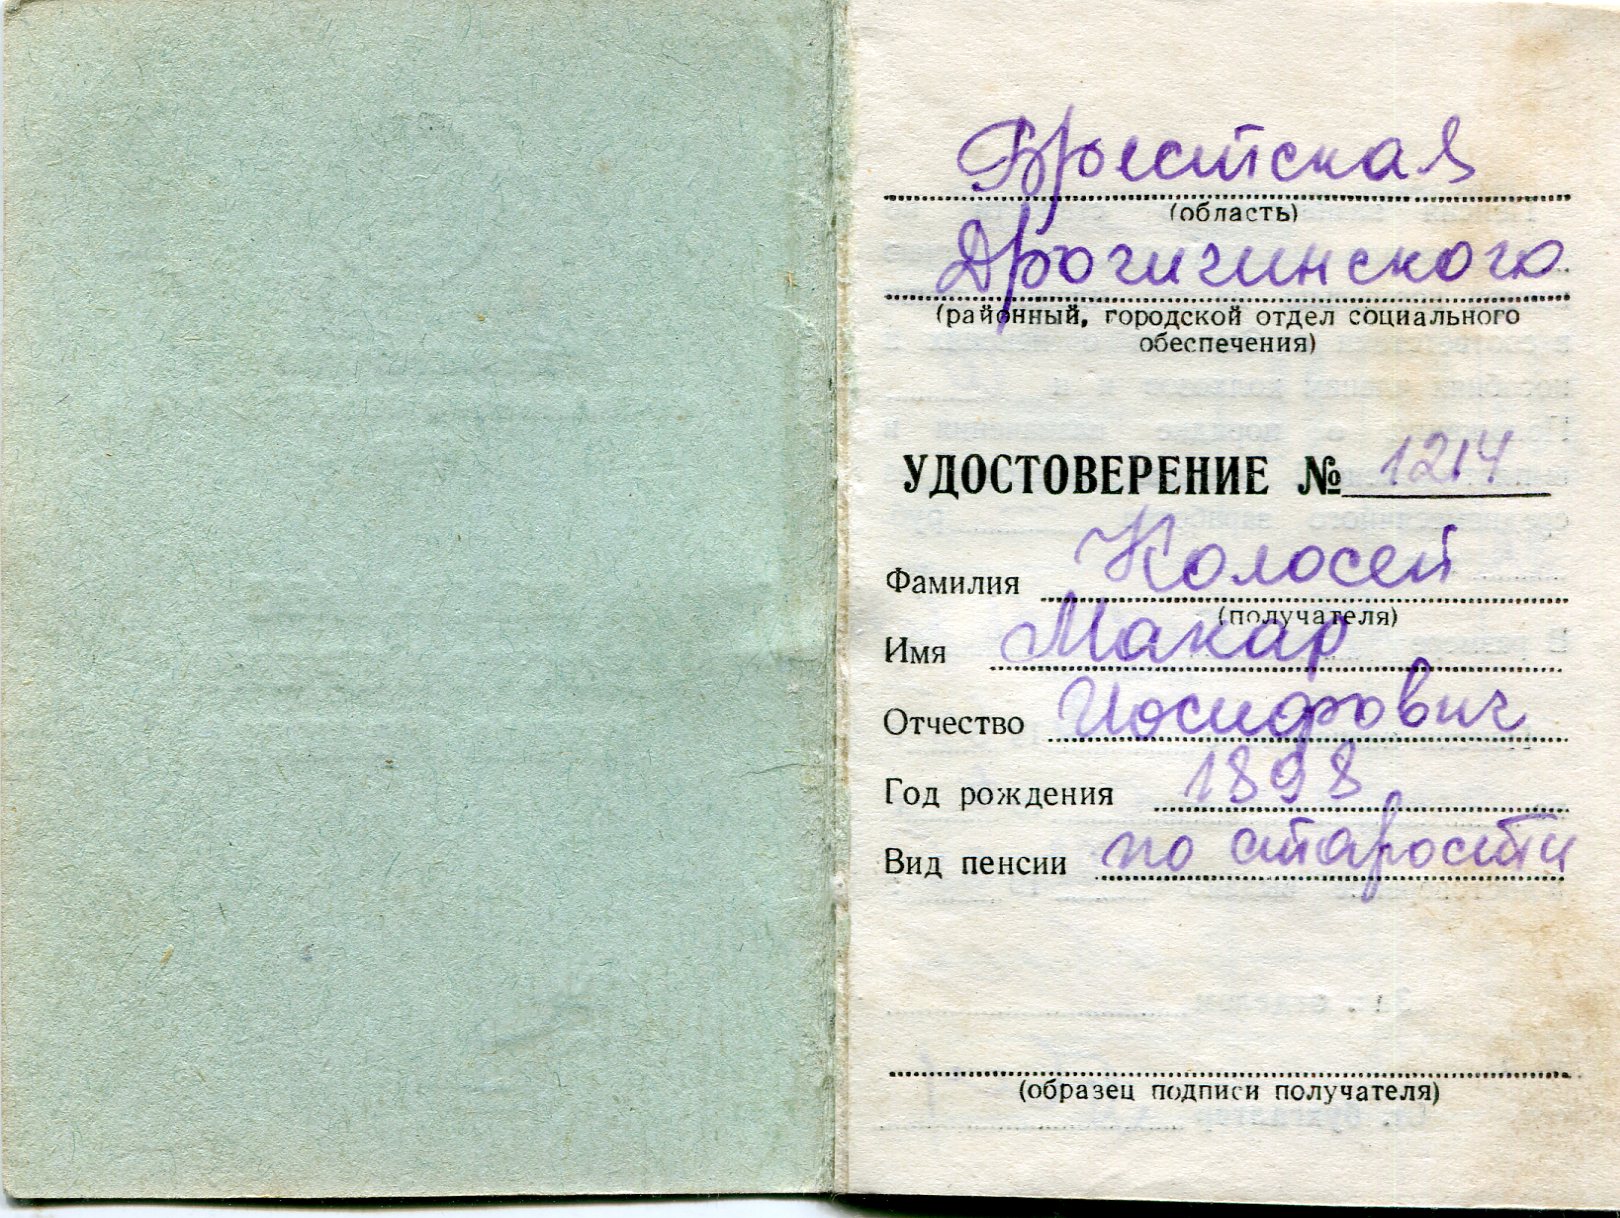 Брестская
(область)
Дрогичинского
(районный, городской отдел социального
обеспечения)
УДОСТОВЕРЕНИЕ № 1214
Фамилия Колосей
(получателя)
Имя Макар
Отчество Иосифович
Год рождения 1898
Вид пенсии по старости
(образец подписи получателя)